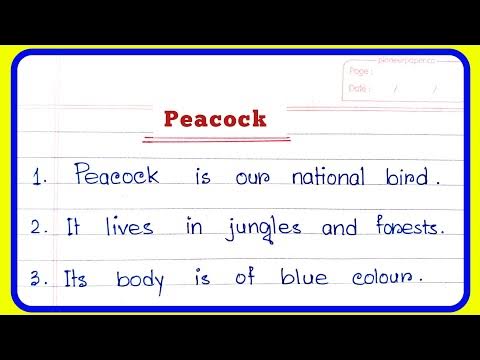 pioneerpaper.co
Page :
Date : / /
Peacock
1. Peacock is our national bird.
2. It lives in jungles and forests.
3. Its body is of blue colour.